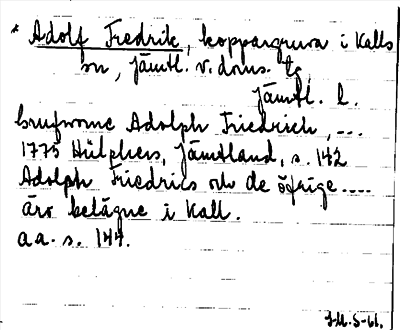 * Adolf Fredrik, koppargruva i Kalls
sn, Jämtl. v. doms. tg,
Jämtl. l.
brukwarne Adolph Friedrich, ...
1775 Hülphers, Jämtland, s. 142
Adolph Friedrics och de öfrige ....
äro belägne i Kall.
a.a. s. 144.